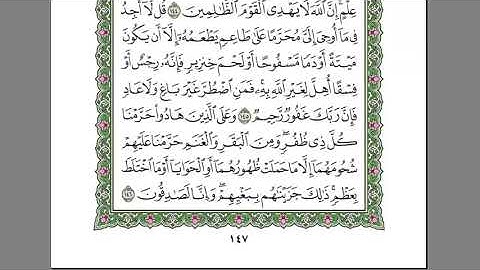 عِلْمٍ إِنَّ ٱللَّهَ لَا يَهْدِى ٱلْقَوْمَ ٱلظَّٰلِمِينَ ١٤٤ قُل لَّآ أَجِدُ
فِى مَآ أُوحِىَ إِلَىَّ مُحَرَّمًا عَلَىٰ طَاعِمٍ يَطْعَمُهُۥٓ إِلَّآ أَن يَكُونَ
مَيْتَةً أَوْ دَمًا مَّسْفُوحًا أَوْ لَحْمَ خِنزِيرٍ فَإِنَّهُۥ رِجْسٌ أَوْ
فِسْقًا أُهِلَّ لِغَيْرِ ٱللَّهِ بِهِۦ فَمَنِ ٱضْطُرَّ غَيْرَ بَاغٍ وَلَا عَادٍ
فَإِنَّ رَبَّكَ غَفُورٌ رَّحِيمٌ ١٤٥ وَعَلَى ٱلَّذِينَ هَادُوا۟ حَرَّمْنَا
كُلَّ ذِى ظُفُرٍ وَمِنَ ٱلْبَقَرِ وَٱلْغَنَمِ حَرَّمْنَا عَلَيْهِمْ
شُحُومَهُمَآ إِلَّا مَا حَمَلَتْ ظُهُورُهُمَآ أَوِ ٱلْحَوَايَآ أَوْ مَا ٱخْتَلَطَ
بِعَظْمٍ ذَٰلِكَ جَزَيْنَٰهُم بِبَغْيِهِمْ وَإِنَّا لَصَٰدِقُونَ ١٤٦
١٤٧